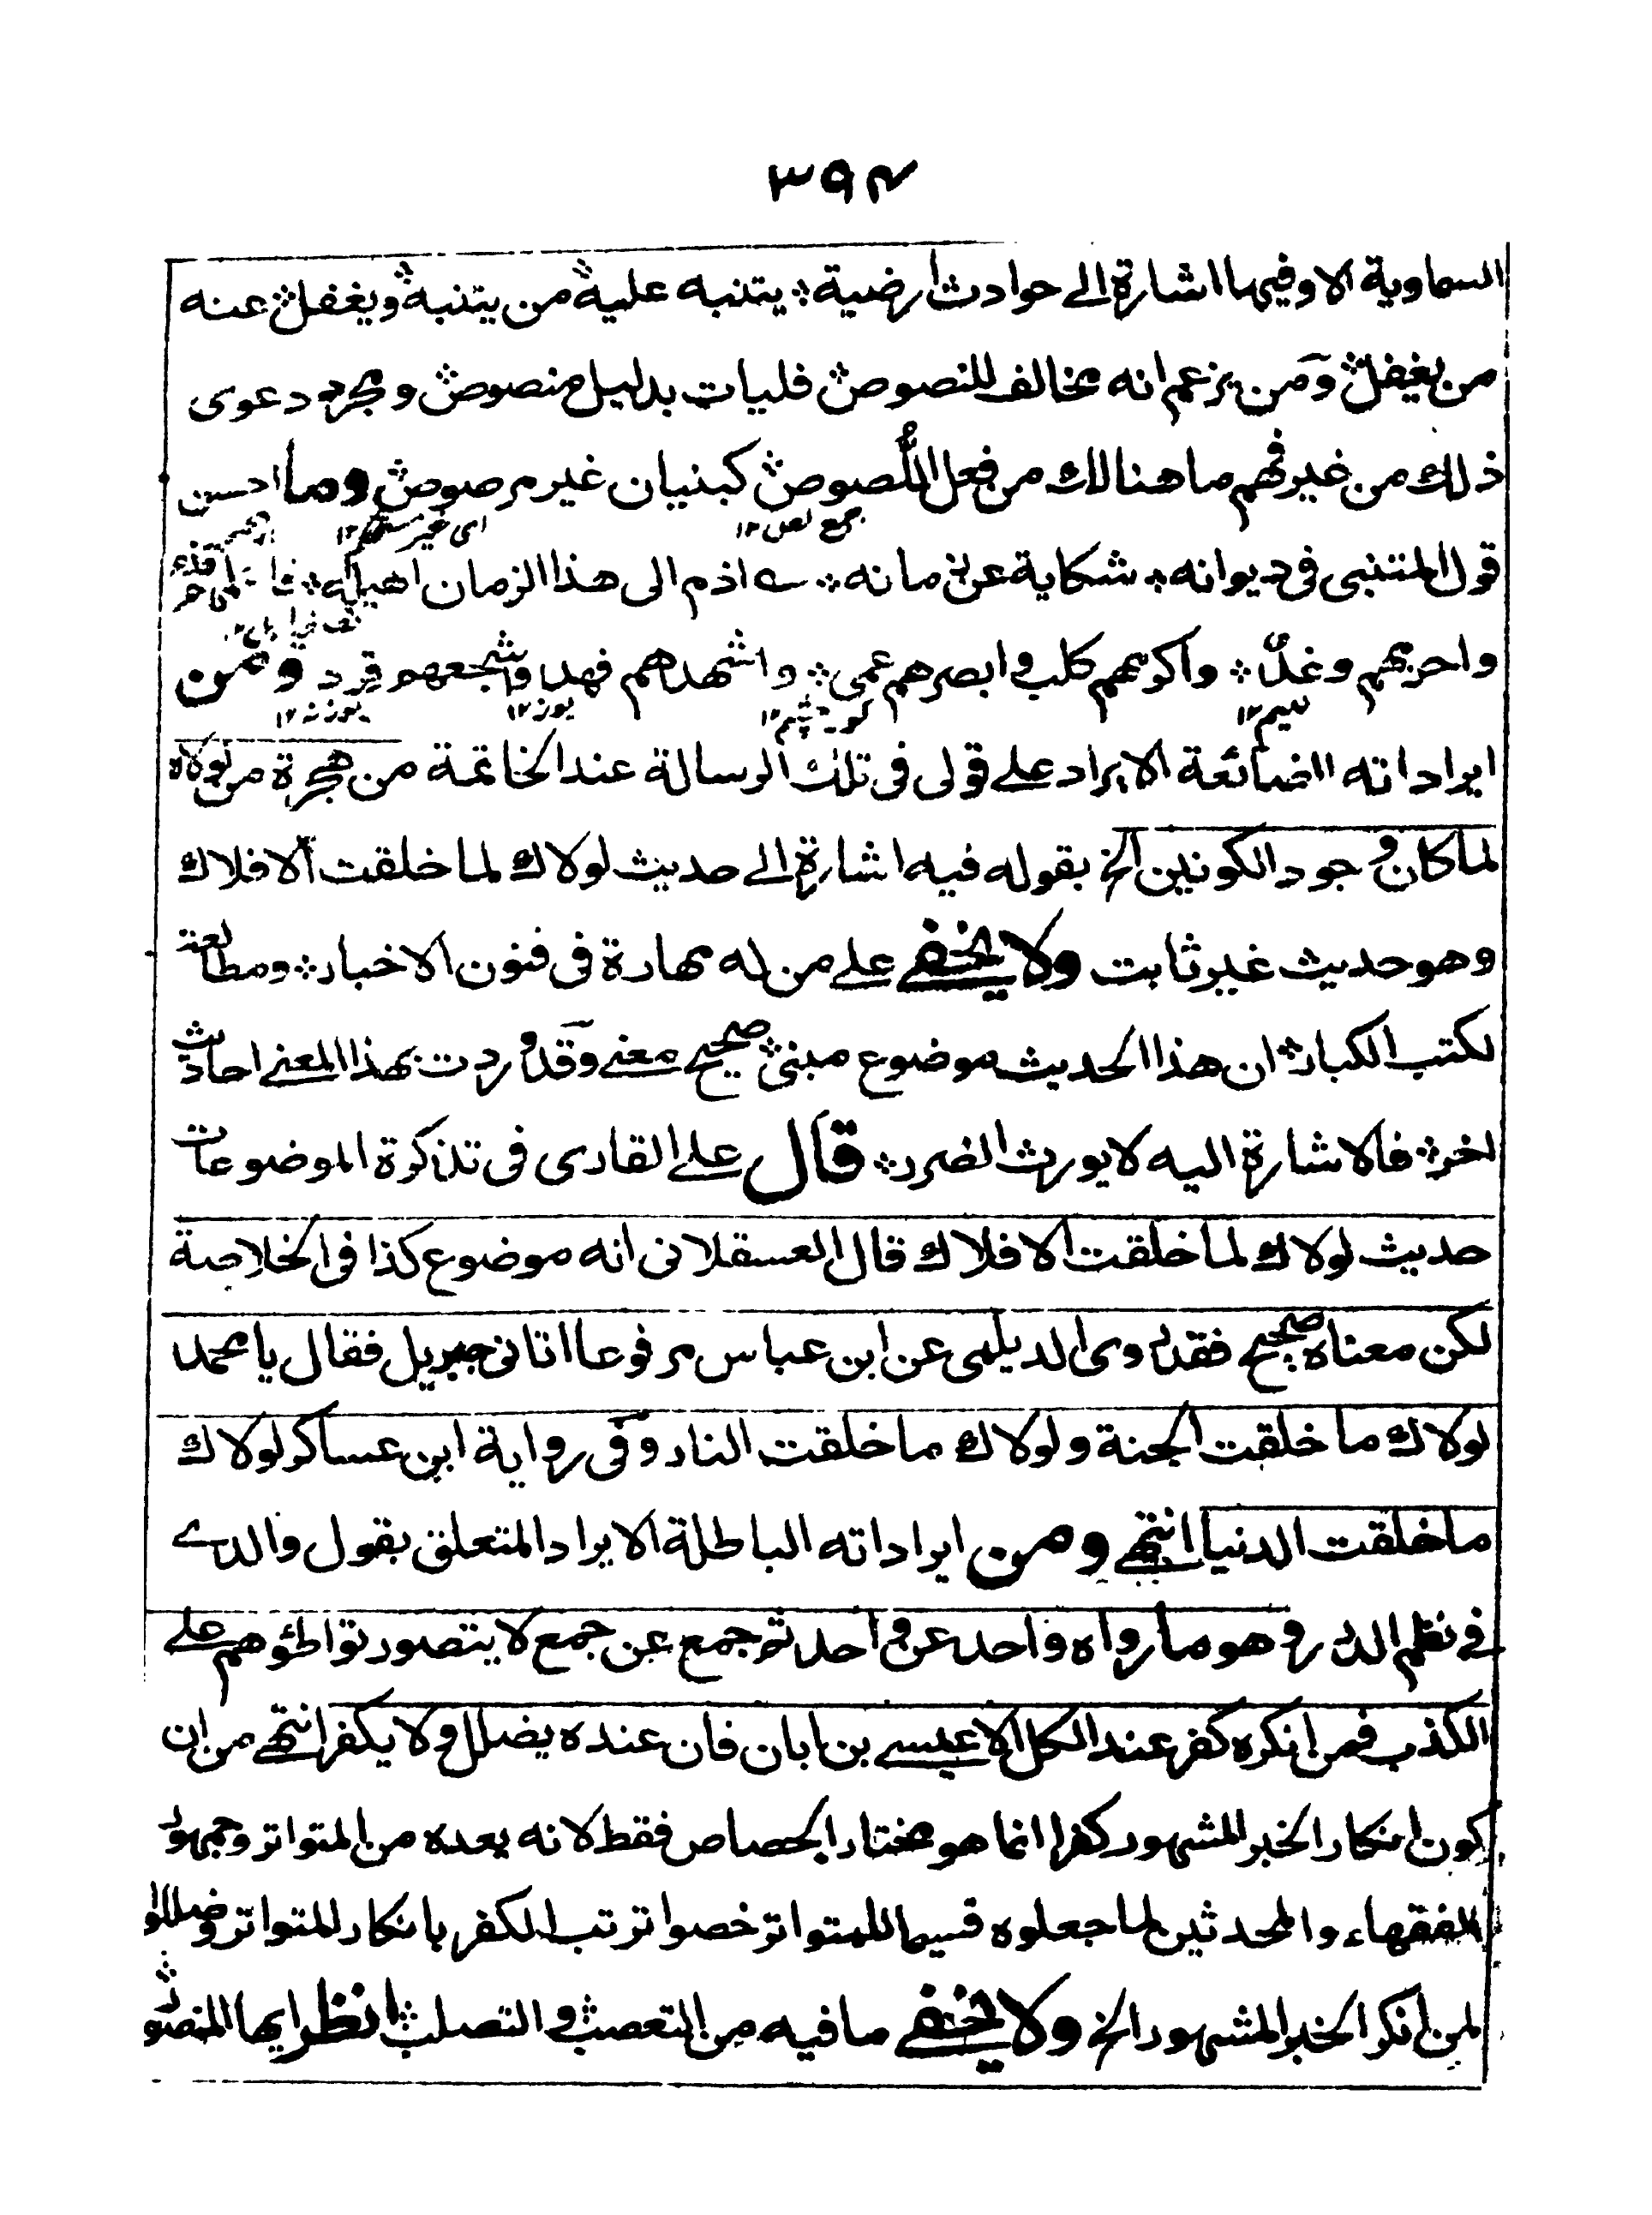 ٣٩٤
السماوية الا وفيها اشارة الى حوادث ارضية ؞ يتنبه عليه من يتنبه ؞ ويغفل عنه
من يغفل ؞ ومن يزعم انه مخالف للنصوص ؞ فليات بدليل منصوص ؞ ومجرد دعوى
ذلك من غير فهم ما هنالك من فعل اللصوص ؞ كبنيان غير مرصوص ؞ وما احسن
جمع لص ١٢ اى غير مستحكم ١٢
قول المتنبى فى ديوانه ؞ شكاية عن زمانه ؞ ؎ اذم الى هذا الزمان اهيله ؞
واحزمهم وغد ؞ واكرمهم كلب وابصرهم عمى ؞ واشهدهم فهد واشجعهم قرد ومن
لئيم ١٢ كور چشم ١٢ يوز ١٢ بوزنه ١٢
ايراداته الضائعة الايراد على قولى فى تلك الرسالة عند الخاتمة من هجرة من لولاه
لما كان وجود الكونين الخ بقوله فيه اشارة الى حديث لولاك لما خلقت الافلاك
وهو حديث غير ثابت ولا يخفى على من له مهارة فى فنون الاخبار ؞ ومطالعة
لكتب الكبار ؞ ان هذا الحديث موضوع مبنى ؞ صحيح معنى وقد وردت بهذا المعنى احاديث
اخر ؞ فالاشارة اليه لا يورث الضرر ؞ قال على القارى فى تذكرة الموضوعات
حديث لولاك لما خلقت الافلاك قال العسقلانى انه موضوع كذا فى الخلاصة
لكن معناه صحيح فقد روى الديلمى عن ابن عباس مرفوعا اتانى جبريل فقال يا محمد
لولاك ما خلقت الجنة ولولاك ما خلقت النار وفى رواية ابن عساكر لولاك
ما خلقت الدنيا انتهى ومن ايراداته الباطلة الايراد المتعلق بقول والدى
فى نظم الدرر وهو ما رواه واحد عن واحد ثم جمع عن جمع لا يتصور تواطؤهم على
الكذب فمن انكره كفر عند الكل الا عيسى بن ابان فان عنده يضلل ولا يكفر انتهى من ان
كون انكار الخبر المشهور كفرا انما هو مختار الجصاص فقط لانه يعده من المتواتر وجمهور
الفقهاء والمحدثين لما جعلوه قسيما للمتواتر خصوا ترتب الكفر بانكار المتواتر وضللوا
لمن انكر الخبر المشهور الخ ولا يخفى ما فيه من التعصب ؞ والتصلب ؞ انظر ايها المنصور ؞